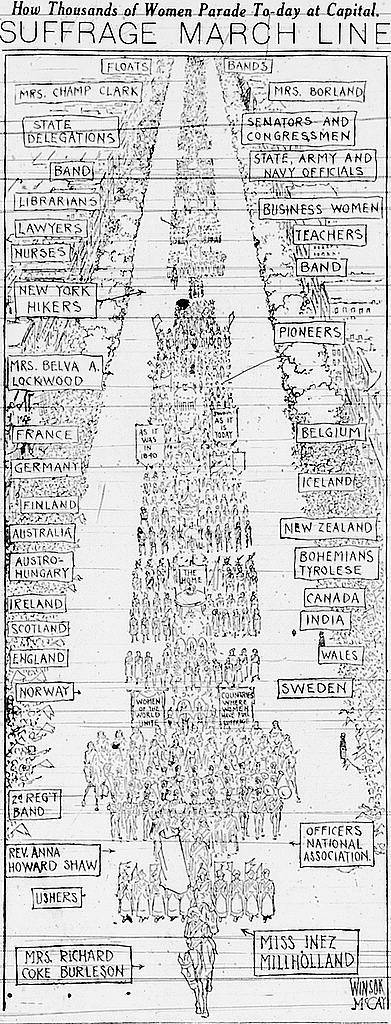 How Thousands of Women Parade To-day at Capital.
SUFFRAGE MARCH LINE
FLOATS
BANDS
MRS. CHAMP CLARK
MRS. BORLAND
STATE
DELEGATIONS
SENATORS AND
CONGRESSMEN
BAND
STATE, ARMY AND
NAVY OFFICIALS
LIBRARIANS
BUSINESS WOMEN
LAWYERS
TEACHERS
NURSES
BAND
NEW YORK
HIKERS
PIONEERS
MRS. BELVA A.
LOCKWOOD
AS IT
WAS
IN
1840
AS IT
IS
TODAY
FRANCE
BELGIUM
GERMANY
ICELAND
FINLAND
NEW ZEALAND
AUSTRALIA
BOHEMIANS
TYROLESE
AUSTRO-
HUNGARY
THE
HOME
CANADA
IRELAND
INDIA
SCOTLAND
WALES
ENGLAND
NORWAY
SWEDEN
WOMEN
OF THE
WORLD
UNITE
COUNTRIES
WHERE
WOMEN
HAVE FULL
SUFFRAGE
2D REG'T
BAND
OFFICERS
NATIONAL
ASSOCIATION.
REV. ANNA
HOWARD SHAW
USHERS
MISS INEZ
MILLHOLLAND
MRS. RICHARD
COKE BURLESON
WINSOR
McCAY